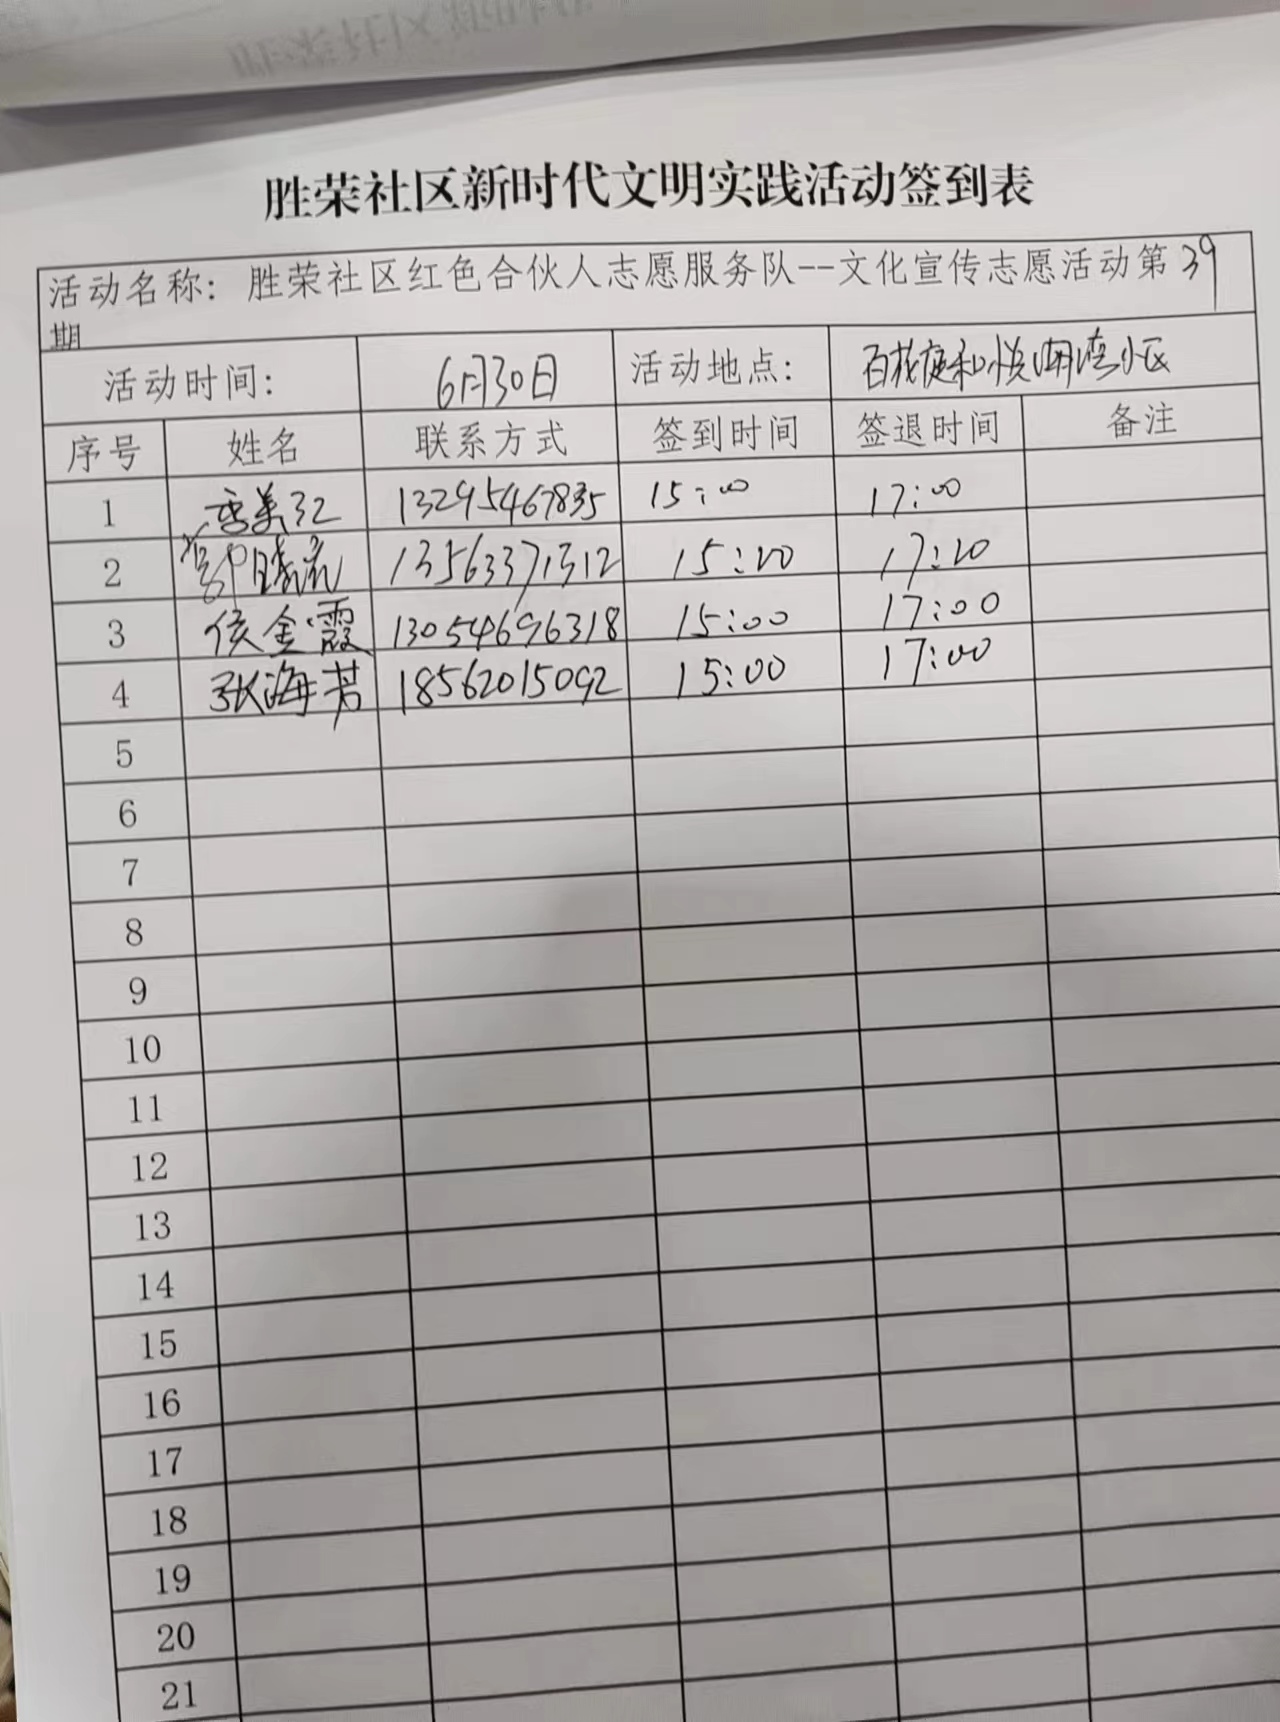 胜荣社区新时代文明实践活动签到表
活动名称: 胜荣社区红色合伙人志愿服务队--文化宣传志愿活动第39
期
活动时间: 6月30日 活动地点: 百花庭和悦湖湾小区
序号 姓名 联系方式 签到时间 签退时间 备注
1 美红 13295467835 15:00 17:00
2 13563371312 15:20 17:20
3 侯金霞 13054696318 15:00 17:00
4 张海芳 18562015092 15:00 17:00
5
6
7
8
9
10
11
12
13
14
15
16
17
18
19
20
21